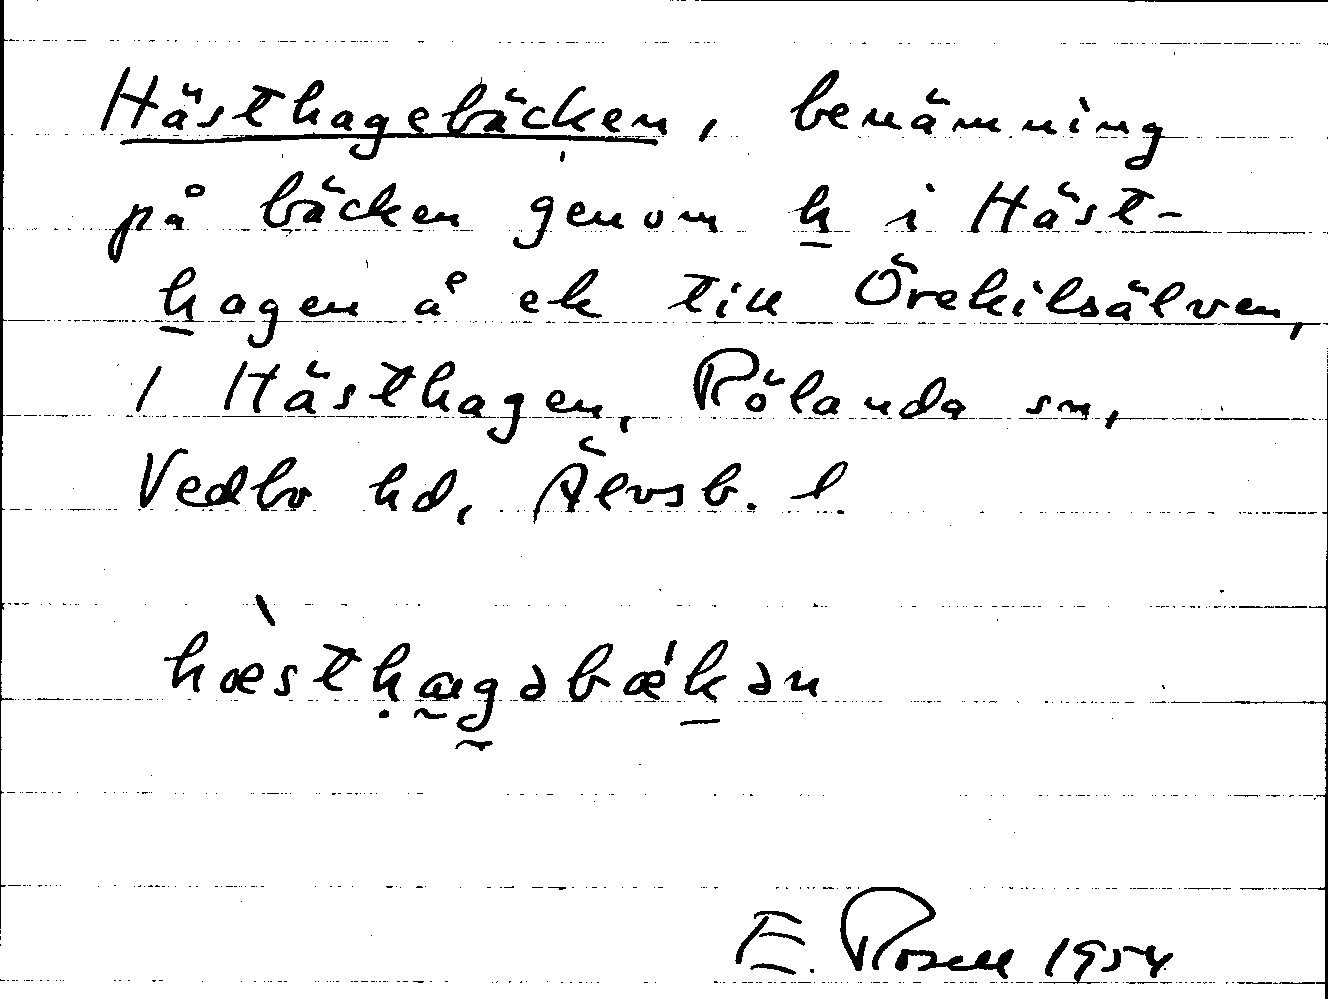 Hästhagebäcken, benämning
på bäcken genom h i Häst-
hagen å ek till Örekilsälven,
i Hästhagen, Rölanda sn,
Vedbo hd, Älvsb. l.
hæ̀sthagəbǽkən
E. Rosell 1954